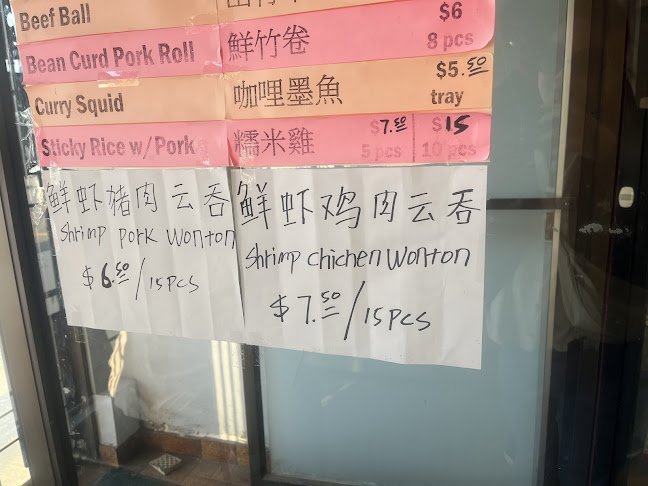 Beef Ball
$6
Bean Curd Pork Roll 鮮竹卷 8 pcs
Curry Squid 咖哩墨魚 $5.50 tray
Sticky Rice w/Pork 糯米雞 $7.50 5 pcs $15 10 pcs
鲜虾猪肉云吞
Shrimp pork wonton
$6.50/15pcs
鲜虾鸡肉云吞
Shrimp chichen wonton
$7.50/15pcs